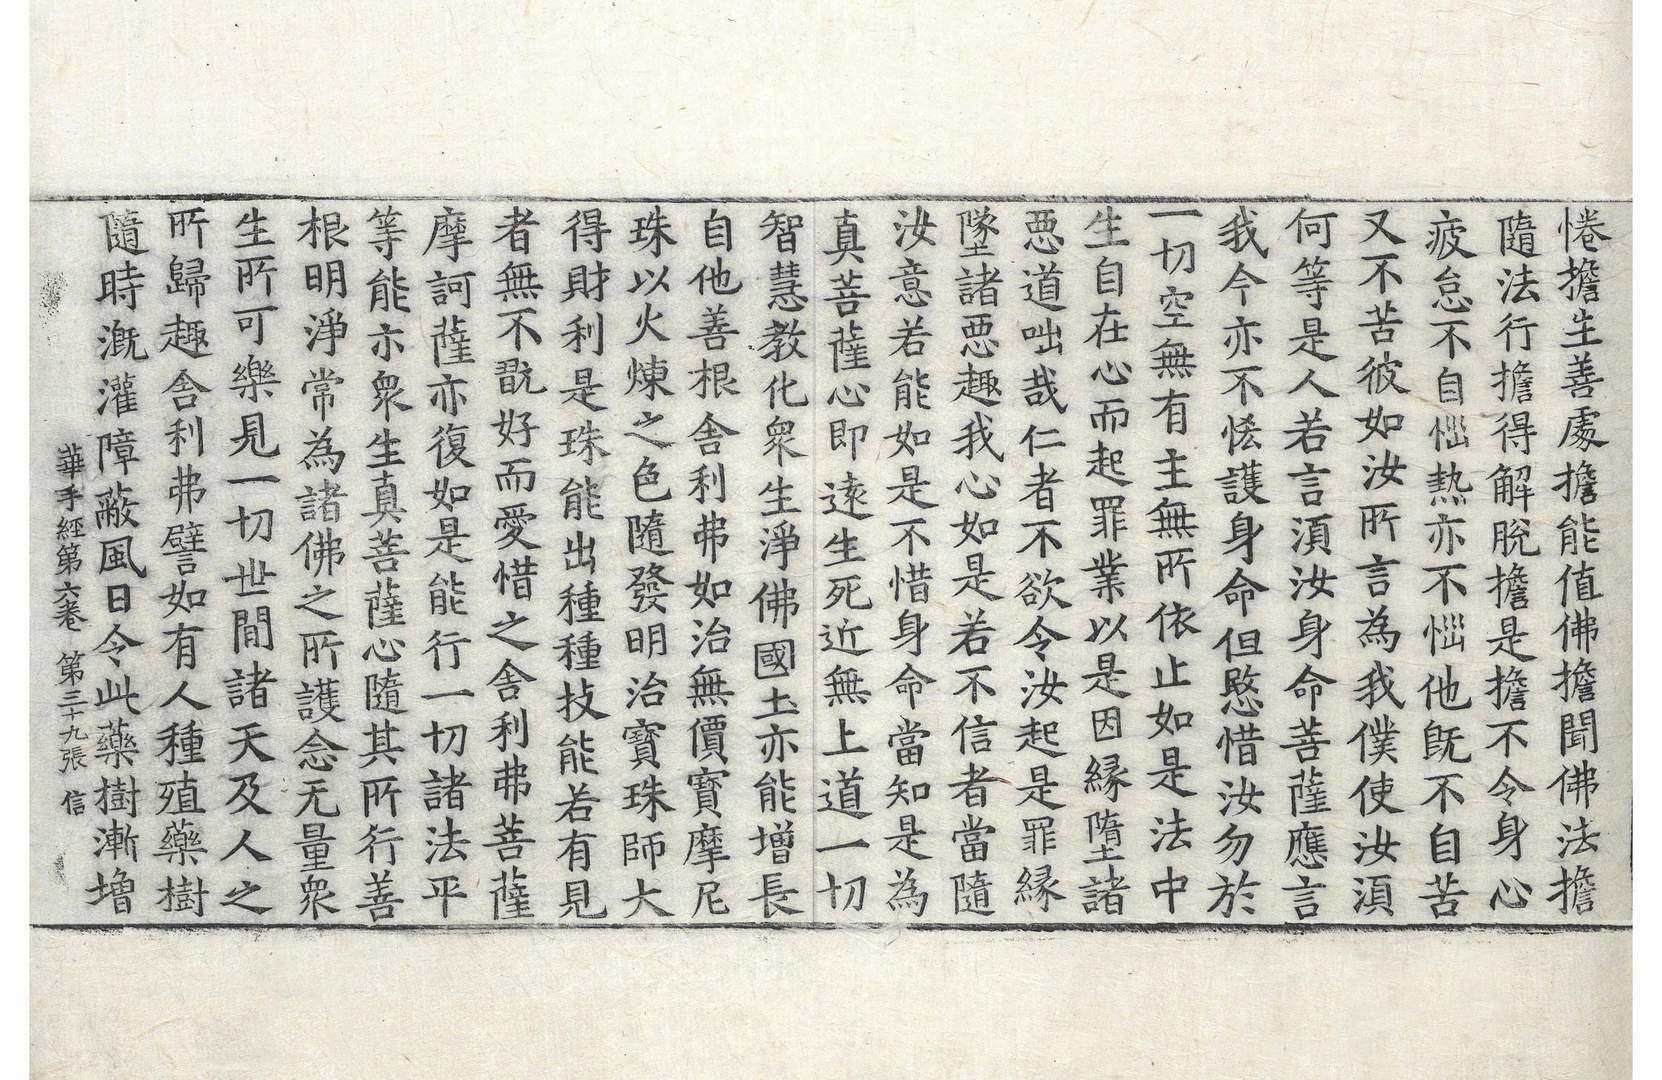 惓擔生善處擔能值佛擔聞佛法擔
隨法行擔得解脫擔是擔不令身心
疲怠不自惱熱亦不惱他既不自苦
又不苦彼如汝所言為我僕使汝湏
何等是人若言湏汝身命菩薩應言
我今亦不恡護身命但愍惜汝勿於
一切空無有主無所依止如是法中
生自在心而起罪業以是因緣墮諸
惡道咄哉仁者不欲令汝起是罪緣
墜諸惡趣我心如是若不信者當隨
汝意若能如是不惜身命當知是為
真菩薩心即遠生死近無上道一切
智慧教化衆生淨佛國土亦能增長
自他善根舍利弗如治無價寶摩尼
珠以火煉之色隨發明治寶珠師大
得財利是珠能出種種技能若有見
者無不翫好而愛惜之舍利弗菩薩
摩訶薩亦復如是能行一切諸法平
等能亦衆生真菩薩心隨其所行善
根明淨常為諸佛之所護念无量衆
生所可樂見一切世間諸天及人之
所歸趣舍利弗譬如有人種殖藥樹
隨時漑灌障蔽風日令此藥樹漸增
華手經第六卷 第三十九張 信